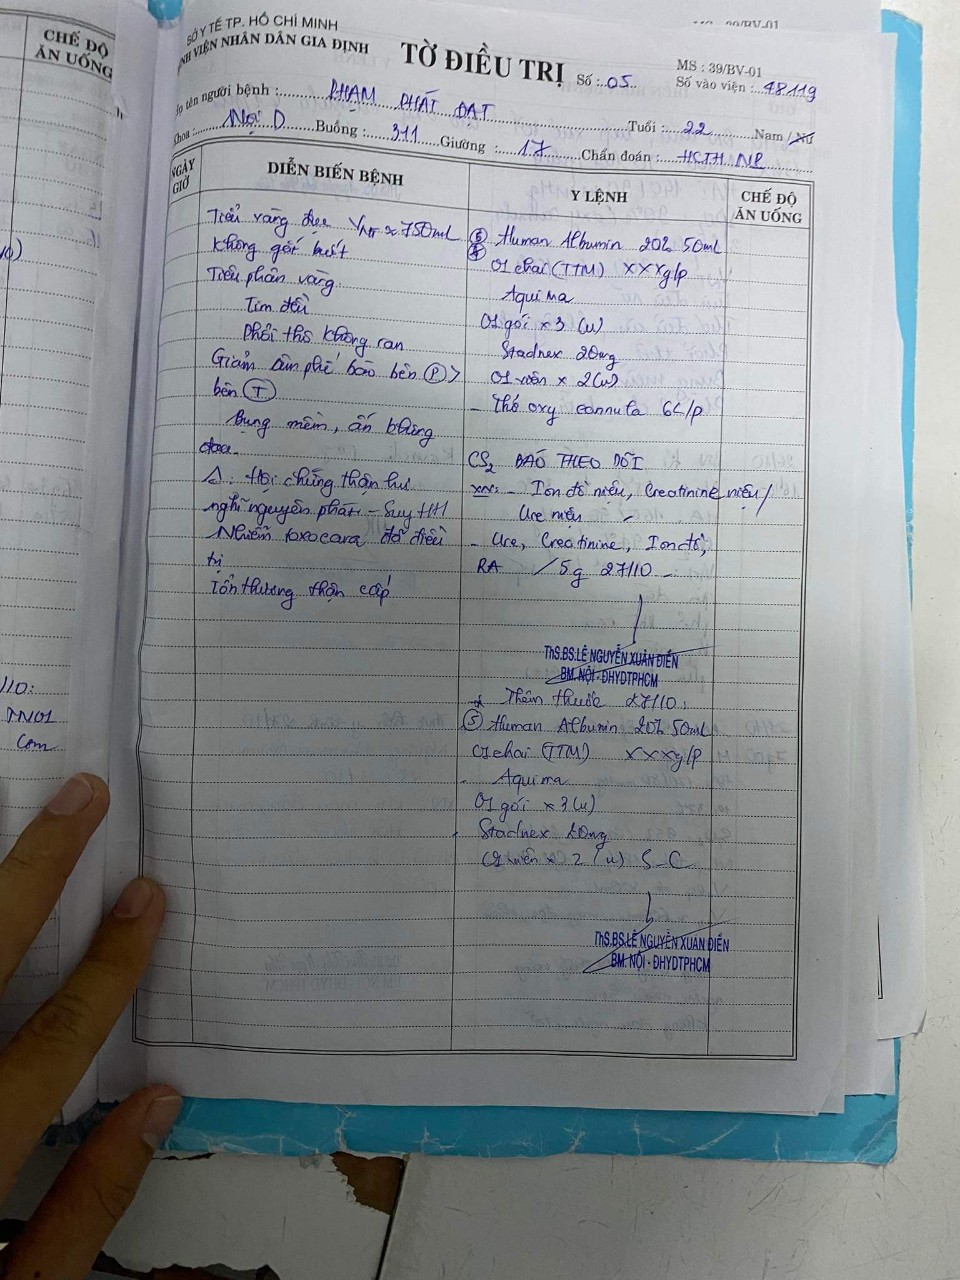 SỞ Y TẾ TP. HỒ CHÍ MINH
NH VIỆN NHÂN DÂN GIA ĐỊNH
TỜ ĐIỀU TRỊ
MS : 39/BV-01
Số : 05
Số vào viện : 48119
ọ tên người bệnh : PHẠM PHÁT ĐẠT Tuổi : 22 Nam / Nữ
Khoa : Nội D Buồng : 311 Giường : 17 Chẩn đoán : HCTH NP
NGÀY GIỜ
DIỄN BIẾN BỆNH
Y LỆNH
CHẾ ĐỘ ĂN UỐNG
Tiểu vàng đục V ≈ 750ml
Không gắt buốt
Tiêu phân vàng
Tim đều
Phổi thô không ran
Giảm âm phế bào bên (P) >
bên (T)
Bụng mềm, ấn không
đau.
Δ: Hội chứng thận hư
nghĩ nguyên phát – Suy HH
Nhiễm toxocara đã điều
trị
Tổn thương thận cấp
Human Albumin 20% 50ml
01 chai (TTM) XXXg/p
Aquima
01 gói x 3 (u)
Stadnex 20mg
01 viên x 2 (u)
- Thở oxy cannula 6L/p
CS2 BÁO THEO DÕI
XN: - Ion đồ niệu, Creatinine niệu /
Ure niệu
- Ure, Creatinine, Ion đồ,
RA / 5g 27/10
ThS.BS.LÊ NGUYỄN XUÂN ĐIỀN
BM. NỘI - ĐHYDTPHCM
Thêm thuốc 27/10:
(5) Human Albumin 20% 50ml
01 chai (TTM) XXXg/p
Aquima
01 gói x 3 (u)
Stadnex 20mg
01 viên x 2 (u) S-C
ThS.BS.LÊ NGUYỄN XUÂN ĐIỀN
BM. NỘI - ĐHYDTPHCM
CHẾ ĐỘ
ĂN UỐNG